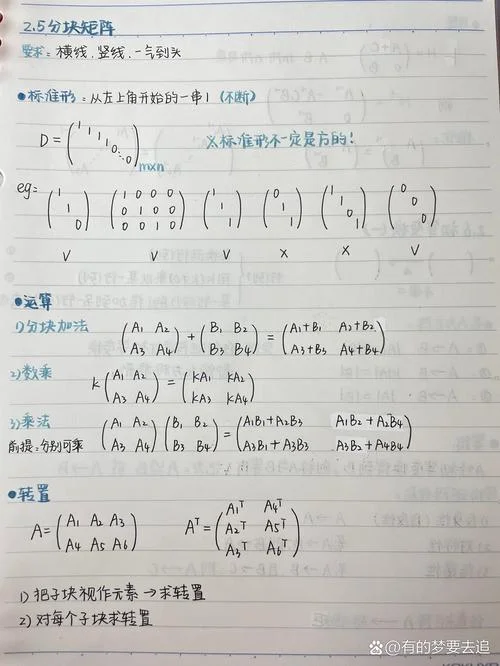 2.5分块矩阵
要求：横线、竖线、一气到头
●标准形：从左上角开始的一串1（不断）
D = (1 1 1 1 0 ⋱ 0)m×n ※标准形不一定是方的！
eg: (1 1 0) (1 0 0 0 / 0 1 0 0 / 0 0 1 0) (1 1 1) (0 1 1) (1 1 0 1) (0 0 0)
√ √ √ × × √
●运算
1)分块加法 (A1 A2 / A3 A4) + (B1 B2 / B3 B4) = (A1+B1 A2+B2 / A3+B3 A4+B4)
2)数乘 k(A1 A2 / A3 A4) = (kA1 kA2 / kA3 kA4)
3)乘法 (A1 A2 / A3 A4)(B1 B2 / B3 B4) = (A1B1+A2B3 A1B2+A2B4 / A3B1+A3B3 A3B2+A4B4)
前提：分别可乘
●转置
A = (A1 A2 A3 / A4 A5 A6) Aᵀ = (A1ᵀ A4ᵀ / A2ᵀ A5ᵀ / A3ᵀ A6ᵀ)
1) 把子块视作元素→求转置
2) 对每个子块求转置
@有的梦要去追